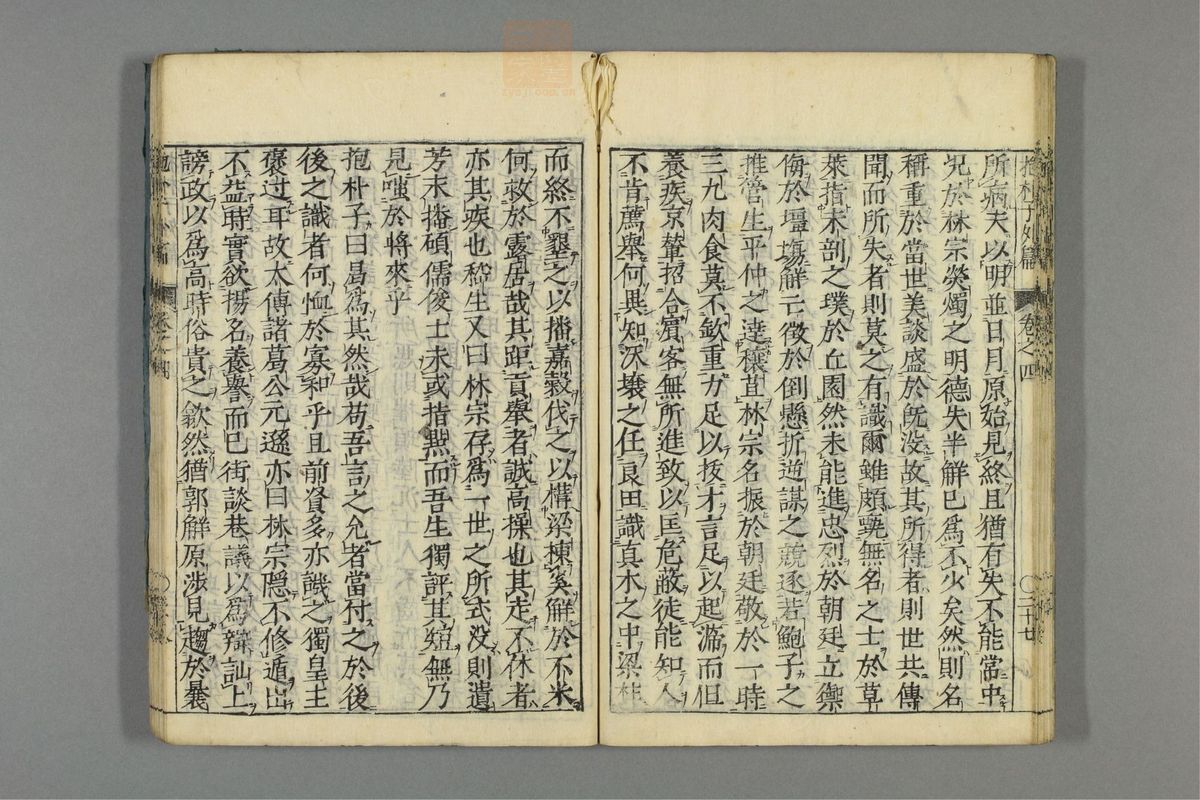 抱朴子外篇 卷之四 〇三十七
所病夫以明並日月原始見終且猶有失不能常中
况於林宗熒燭之明德失半解巳爲不少矣然則名
稱重於當世美談盛於旣没故其所得者則世共傳
聞而所失者則莫之有識爾雖頗甄無名之士於草
萊指未剖之璞於丘園然未能進忠烈於朝廷立禦
侮於壇塲解亡徵於倒懸折逆謀之競逐若鮑子之
推管生平仲之達穰苴林宗名振於朝廷敬於一時
三九肉食莫不欽重力足以拔才言足以起滞而但
養疾京輦招合賓客無所進致以匡危蔽徒能知人
不肯薦舉何異知沃壤之任良田識真木之中梁柱
而終不墾之以播嘉穀伐之以構梁棟奚解於不米
何救於露居哉其距貢舉者誠高操也其走不休者
亦其疾也嵇生又曰林宗存爲一世之所式没則遺
芳末播碩儒俊士未或指㸃而吾生獨評其短無乃
見嗤於將來乎
抱朴子曰曷爲其然哉苟吾言之允者當付之於後
後之識者何恤於寡和乎且前賢多亦譏之獨皇主
褒过耳故太傅諸葛公元遜亦曰林宗隱不修遁出
不益時實欲揚名養譽而巳街談巷議以爲辯訕上
謗政以爲高時俗貴之歙然猶郭解原涉見趨於曩